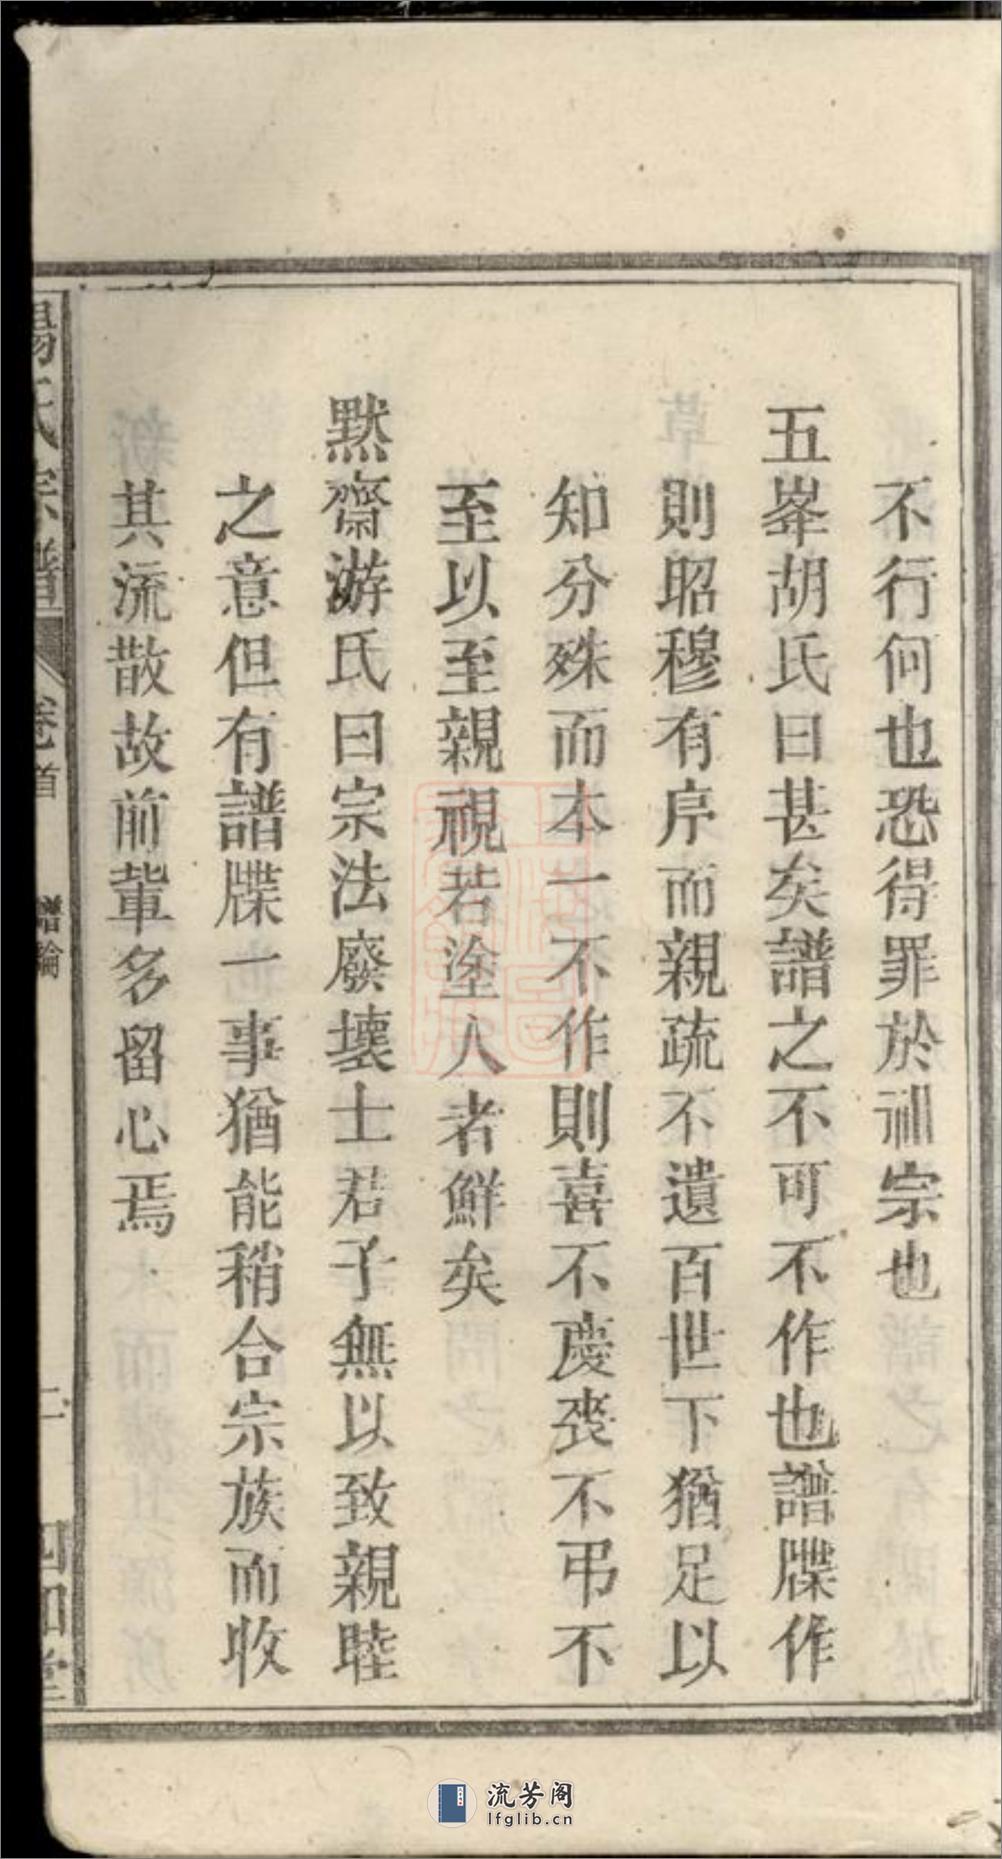 不行何也恐得罪於祖宗也
五峯胡氏曰甚矣譜之不可不作也譜牒作
則昭穆有序而親疏不遺百世下猶足以
知分殊而本一不作則喜不慶喪不弔不
至以至親視若塗人者鮮矣
默齋游氏曰宗法廢壞士君子無以致親睦
之意但有譜牒一事猶能稍合宗族而收
其流散故前輩多留心焉
氏宗譜
卷首
譜論
四知堂
流芳阁
lfglib.cn